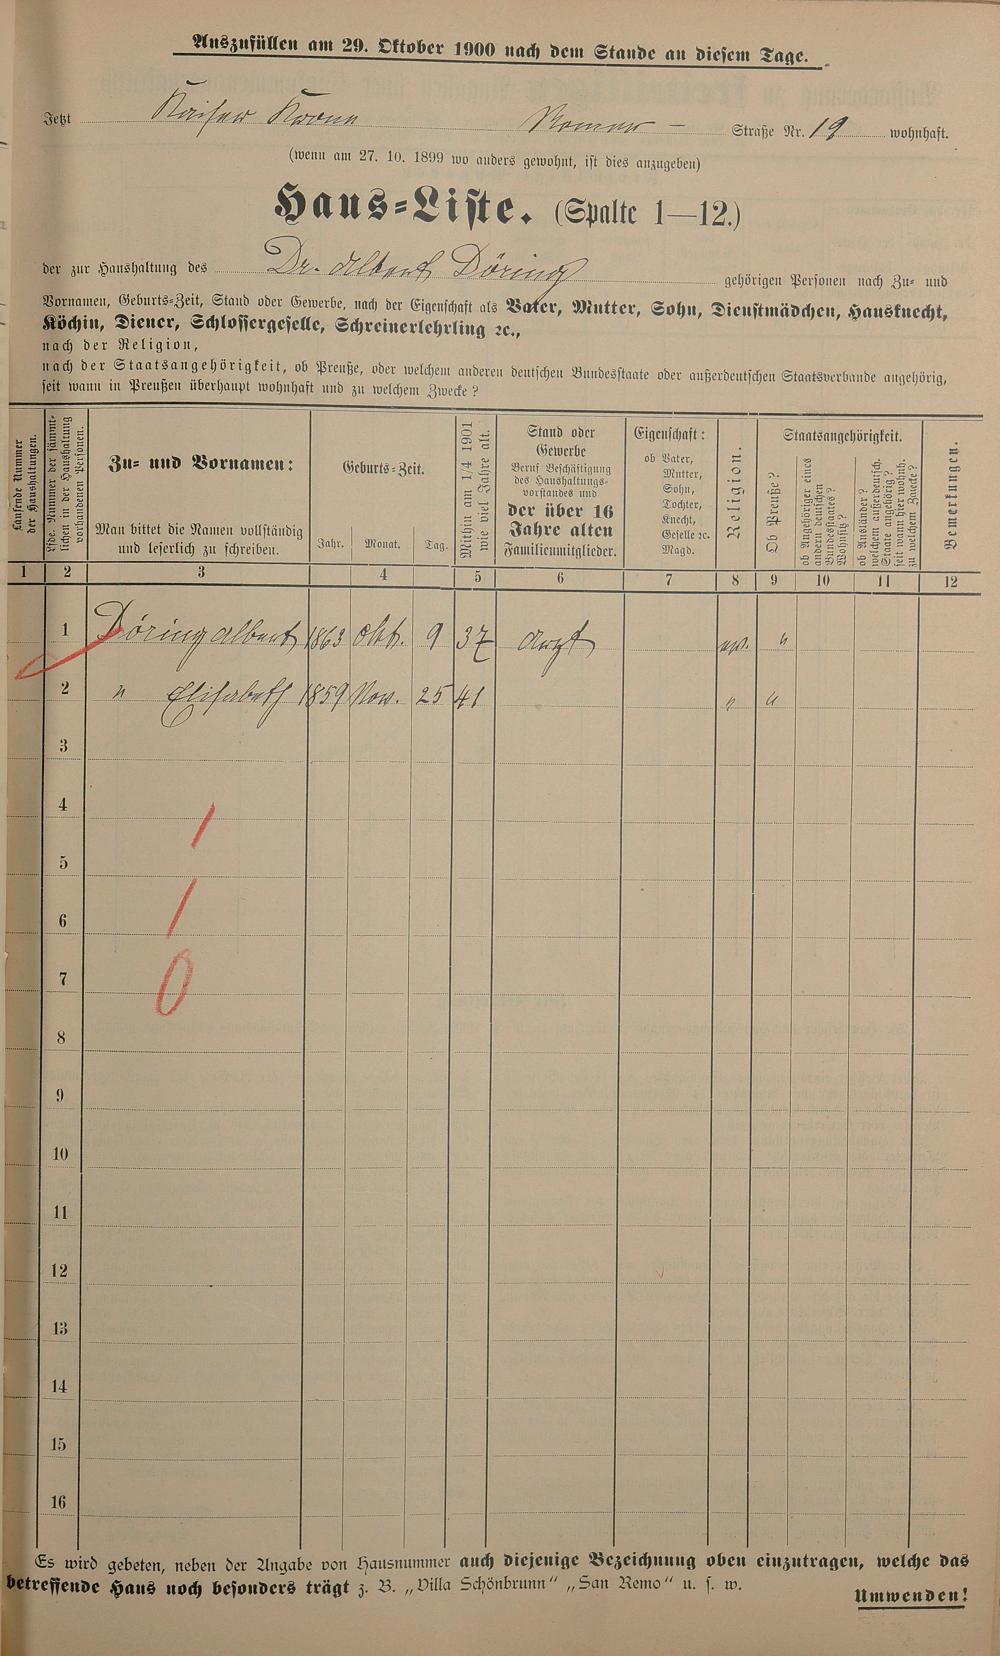 Auszufüllen am 29. Oktober 1900 nach dem Stande an diesem Tage.
Jetzt Kaiser Krone Römer – Straße Nr. 19 wohnhaft.
(wenn am 27. 10. 1899 wo anders gewohnt, ist dies anzugeben)
Haus=Liste. (Spalte 1—12.)
der zur Haushaltung des Dr. Albert Döring gehörigen Personen nach Zu= und
Vornamen, Geburts=Zeit, Stand oder Gewerbe, nach der Eigenschaft als Vater, Mutter, Sohn, Dienstmädchen, Hausknecht,
Köchin, Diener, Schlossergeselle, Schreinerlehrling ꝛc.,
nach der Religion,
nach der Staatsangehörigkeit, ob Preuße, oder welchem anderen deutschen Bundesstaate oder außerdeutschen Staatsverbande angehörig,
seit wann in Preußen überhaupt wohnhaft und zu welchem Zwecke?
Laufende Nummer
der Haushaltungen.
Lfde. Nummer der sämmt=
lichen in der Haushaltung
vorhandenen Personen.
Zu= und Vornamen:
Man bittet die Namen vollständig
und leserlich zu schreiben.
Geburts=Zeit.
Jahr. Monat. Tag.
Mithin am 1/4 1901
wie viel Jahre alt.
Stand oder
Gewerbe
Beruf Beschäftigung
des Haushaltungs=
vorstandes und
der über 16
Jahre alten
Familienmitglieder.
Eigenschaft:
ob Vater,
Mutter,
Sohn,
Tochter,
Knecht,
Geselle ꝛc.
Magd.
Religion.
Staatsangehörigkeit.
Ob Preuße?
ob Angehöriger eines
andern deutschen
Bundesstaates?
Wohnsitz?
ob Ausländer?
welchem außerdeutsch.
Staate angehörig?
seit wann hier wohnh.
zu welchem Zwecke?
Bemerkungen.
1 2 3 4 5 6 7 8 9 10 11 12
1 Döring Albert 1863 Okt. 9 37 Arzt ev. "
2 " Elisabeth 1859 Nov. 25 41 " "
3
4
1
5
6
1
7
0
8
9
10
11
12
13
14
15
16
Es wird gebeten, neben der Angabe von Hausnummer auch diejenige Bezeichnung oben einzutragen, welche das
betreffende Haus noch besonders trägt z. B. „Villa Schönbrunn“ „San Remo“ u. s. w.
Umwenden!